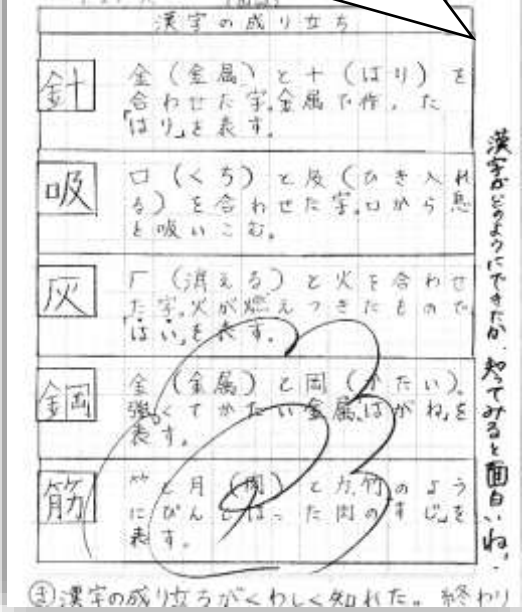 漢字の成り立ち
針
金（金属）と十（はり）を
合わせた字。金属で作った
「はり」を表す。
吸
口（くち）と及（ひき入れ
る）を合わせた字。口から息
を吸いこむ。
灰
厂（消える）と火を合わせ
た字。火が燃えつきたもので
「はい」を表す。
鋼
金（金属）と岡（かたい）。
強くてかたい金属、はがね」を
表す。
筋
竹と月（肉）と力。竹のよう
にぴんとはった肉のすじ」を
表す。
漢字がどのようにできたか、知ってみると面白いね。
㋖漢字の成り立ちがくわしく知れた。終わり